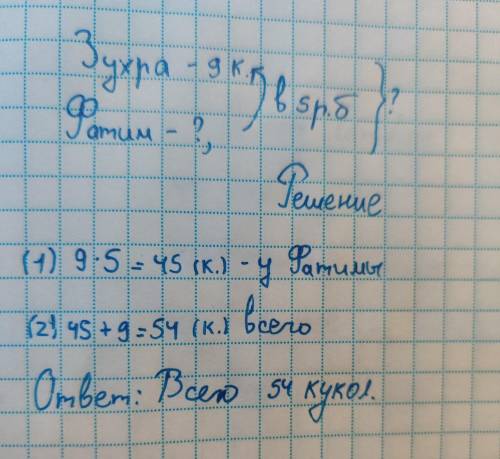 Зухра - 9 к.
Фатим - ?, в 5 р. б ?
Решение
(1) 9 · 5 = 45 (к.) - у Фатимы
(2) 45 + 9 = 54 (к.) всего
Ответ: Всего 54 кукол.